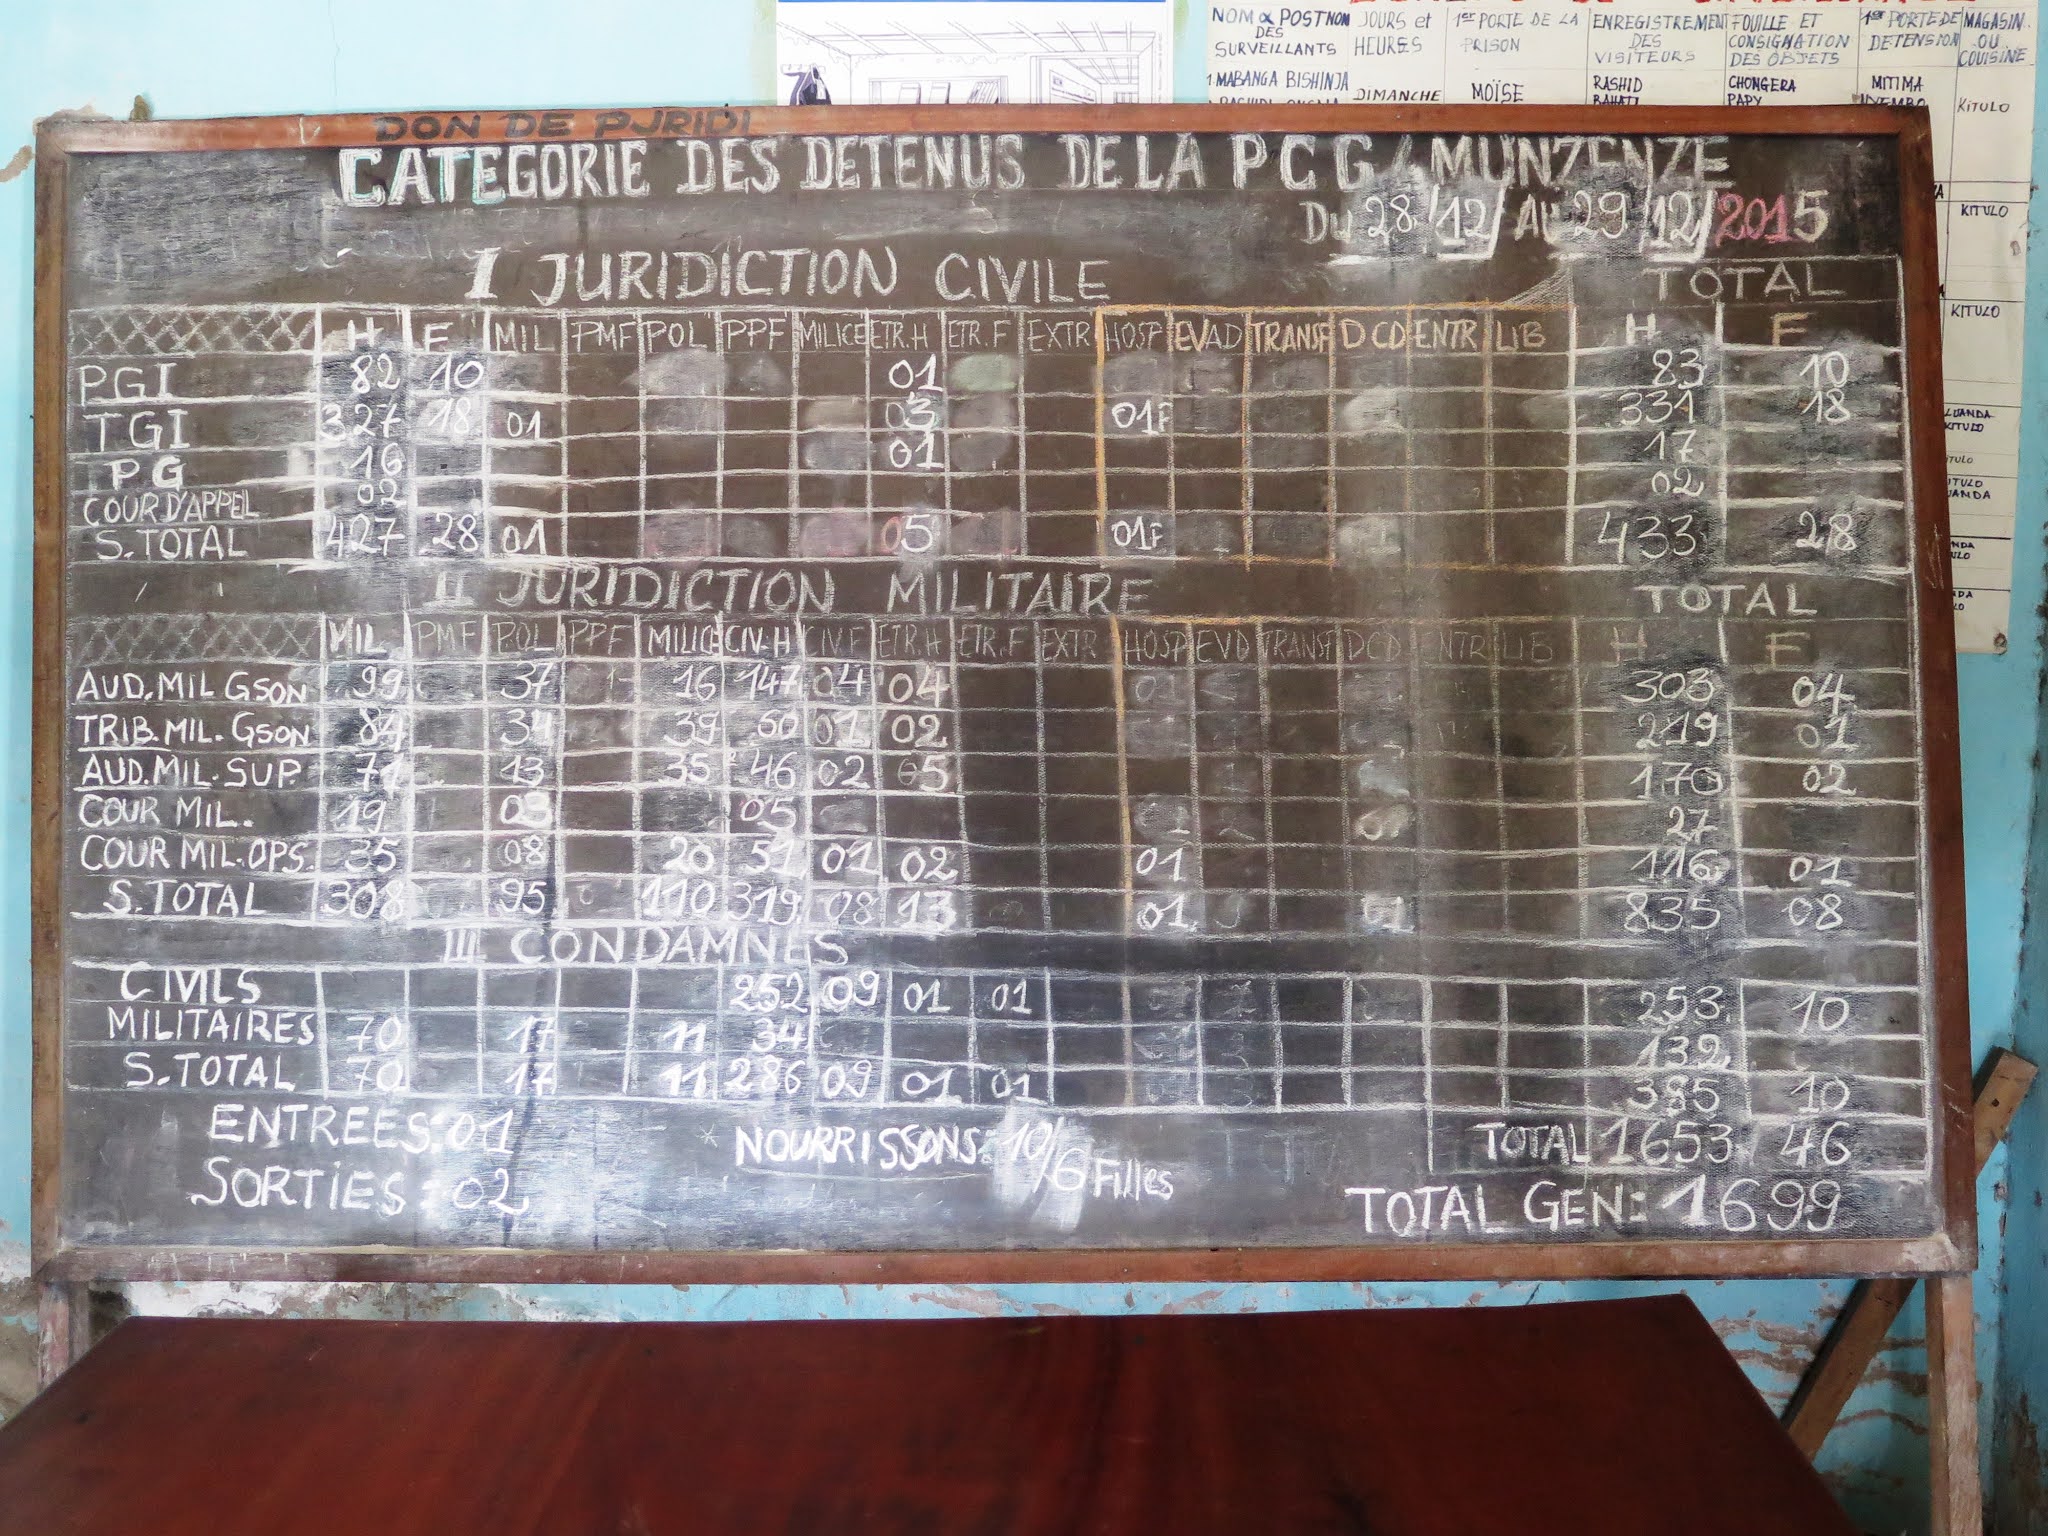 NOM & POSTNOM DES SURVEILLANTS JOURS et HEURES 1er PORTE DE LA PRISON ENREGISTREMENT DES VISITEURS FOUILLE ET CONSIGNATION DES OBJETS 1er PORTE DE DETENSION MAGASIN OU COUISINE
1. MABANGA BISHINJA DIMANCHE MOÏSE RASHID CHONGERA MITIMA KITULO
PAPY
KITULO
KITULO
LUANDA
KITULO
DON DE PJRIDI
CATEGORIE DES DETENUS DE LA P C G / MUNZENZE
DU 28/12/ AU 29/12/2015
I JURIDICTION CIVILE TOTAL
H F MIL PMF POL PPF MILICE ETR.H ETR.F EXTR HOSP EVAD TRANSF DCD ENTR LIB H F
PGI 82 10 01 83 10
TGI 327 18 01 03 01F 331 18
PG 16 01 17
COUR D'APPEL 02 02
S.TOTAL 427 28 01 05 01F 433 28
II JURIDICTION MILITAIRE TOTAL
MIL PMF POL PPF MILICE CIV.H CIV.F ETR.H ETR.F EXTR HOSP EVD TRANSF DCD ENTR LIB H F
AUD.MIL GSON 99 37 16 147 04 04 303 04
TRIB.MIL.GSON 84 34 39 60 01 02 219 01
AUD.MIL.SUP. 71 13 35 46 02 05 170 02
COUR MIL. 19 03 05 27
COUR MIL.OPS. 35 08 20 51 01 02 01 116 01
S.TOTAL 308 95 110 319 08 13 01 01 835 08
III CONDAMNES
CIVILS 252 09 01 01 253 10
MILITAIRES 70 17 11 34 132
S.TOTAL 70 17 11 286 09 01 01 385 10
ENTREES: 01 NOURRISSONS: 10/6 Filles TOTAL 1653 46
SORTIES: 02 TOTAL GEN: 1699